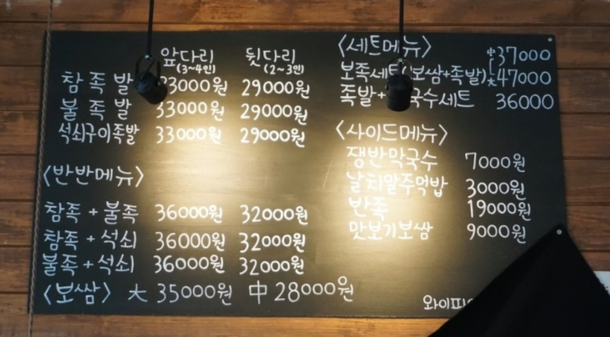 앞다리 뒷다리
(3~4인) (2~3인)
참족발 33000원 29000원
불족발 33000원 29000원
석쇠구이족발 33000원 29000원
<반반메뉴>
참족+불족 36000원 32000원
참족+석쇠 36000원 32000원
불족+석쇠 36000원 32000원
<보쌈> 大 35000원 中 28000원
<세트메뉴>
中 37000
보족세트(보쌈+족발) 大 47000
족발+ 국수세트 36000
<사이드메뉴>
쟁반막국수 7000원
날치알주먹밥 3000원
반족 19000원
맛보기보쌈 9000원